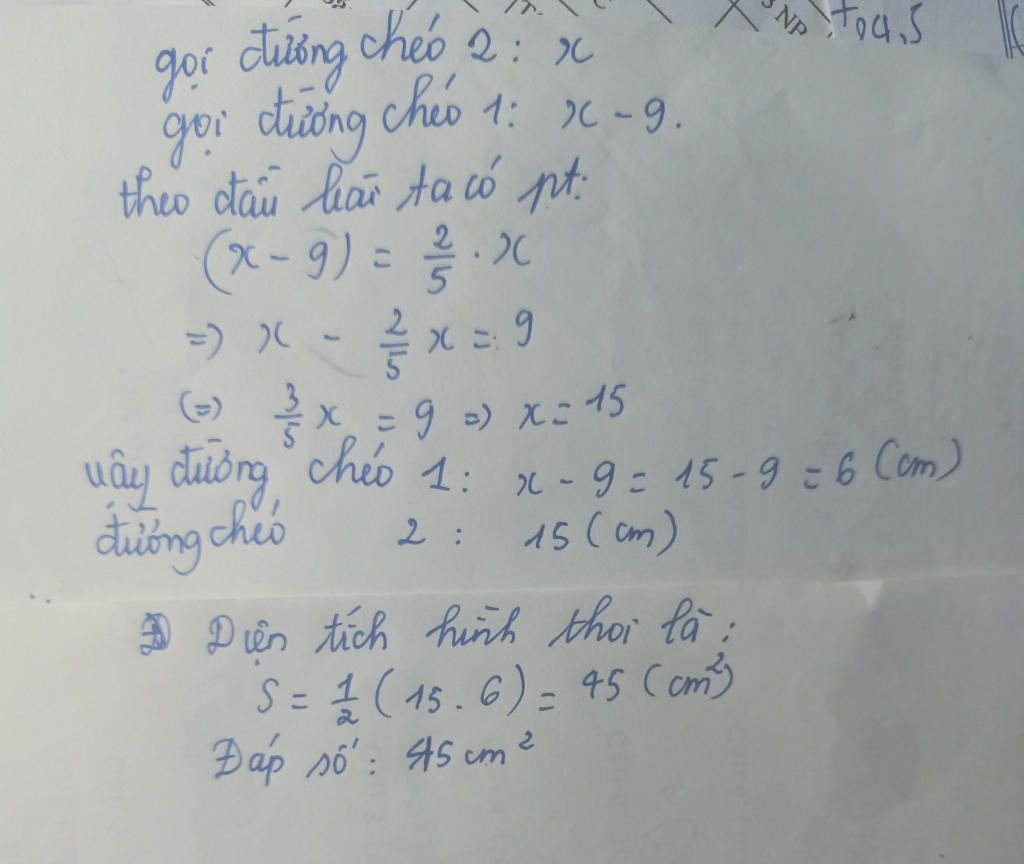 NP
+04,5
gọi đường chéo 2: x
gọi đường chéo 1: x - 9.
theo đầu bài ta có pt:
(x - 9) = 2/5 . x
=> x - 2/5 x = 9
(=) 3/5 x = 9 => x = 15
vậy đường chéo 1: x - 9 = 15 - 9 = 6 (cm)
đường chéo 2 : 15 (cm)
Diện tích hình thoi là:
S = 1/2 ( 15 . 6 ) = 45 (cm²)
Đáp số: 45 cm²